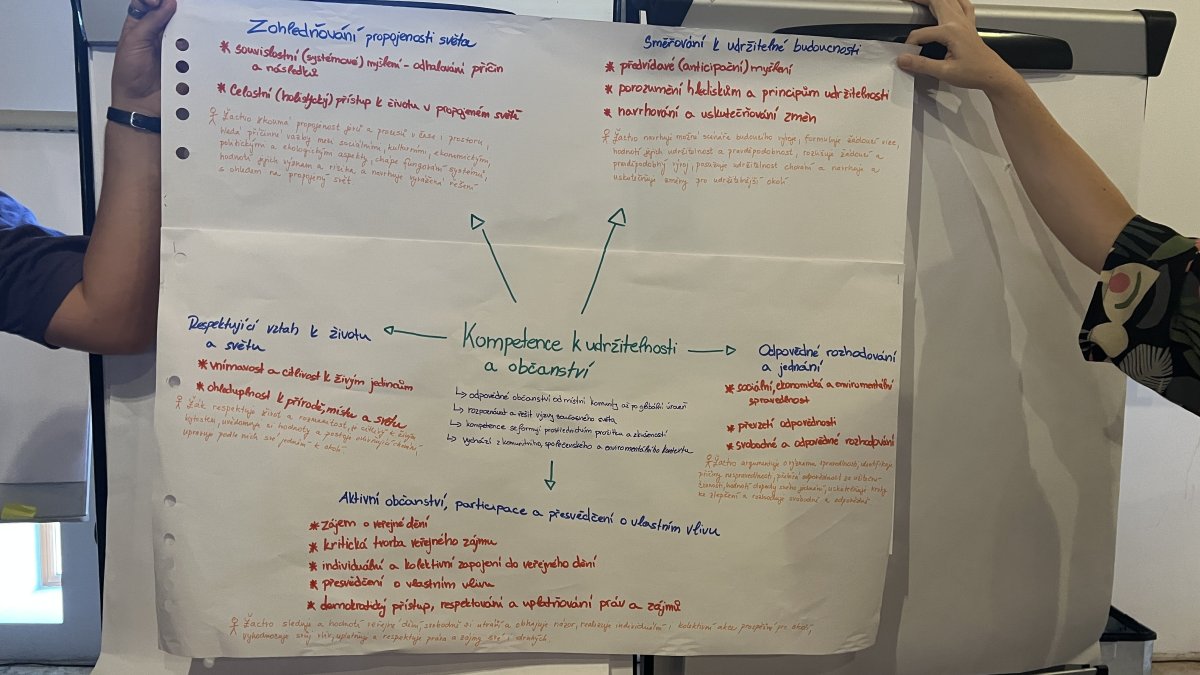 Zohledňování propojenosti světa
* souvislostní (systémové) myšlení - odhalování příčin
a následků
* Celostní (holistický) přístup k životu v propojeném světě
Žactvo zkoumá propojenost jevů a procesů v čase i prostoru,
hledá příčinné vazby mezi sociálními, kulturními, ekonomickými,
politickými a ekologickými aspekty, chápe fungování systémů,
hodnotí jejich význam a rizika, a navrhuje řešení
s ohledem na propojený svět.
Směřování k udržitelné budoucnosti
* předvídavé (anticipační) myšlení
* porozumění hlediskům a principům udržitelnosti
* navrhování a uskutečňování změn
Žactvo navrhuje možné scénáře budoucího vývoje, formuluje žádoucí vize,
hodnotí jejich udržitelnost a pravděpodobnost, rozlišuje žádoucí a
pravděpodobný vývoj, posuzuje udržitelnost chování a navrhuje a
uskutečňuje změny pro udržitelnější okolí.
Respektující vztah k životu
a světu
* vnímavost a citlivost k živým jedincům
* ohleduplnost k přírodě, místu a světu
Žák respektuje život a rozmanitost, je citlivý k živým
bytostem, uvědomuje si hodnoty a postoje ovlivňující jednání,
upravuje podle nich své jednání k okolí.
Kompetence k udržitelnosti
a občanství
↳ odpovědné občanství od místní komunity až po globální úroveň
↳ rozpoznávat a řešit výzvy současného světa
↳ kompetence se formují prostřednictvím prožitku a zkušeností
↳ Vychází z komunitního, společenského a enviromentálního kontextu
Odpovědné rozhodování
a jednání
* sociální, ekonomická a enviromentální
spravedlnost
* převzetí odpovědnosti
* svobodné a odpovědné rozhodování
Žactvo argumentuje o významu spravedlnosti, identifikuje
příčiny nespravedlnosti, přebírá odpovědnost za
hodnotí dopady svého jednání, uskutečňuje kroky
ke zlepšení a rozhoduje svobodně a odpovědně.
Aktivní občanství, participace a přesvědčení o vlastním vlivu
* zájem o veřejné dění
* kritická tvorba veřejného zájmu
* individuální a kolektivní zapojení do veřejného dění
* přesvědčení o vlastním vlivu
* demokratický přístup, respektování a uplatňování práv a zájmů
Žactvo sleduje a hodnotí veřejné dění, svobodně si utváří a obhajuje názor, realizuje individuální i kolektivní akce prospěšné pro okolí,
vyhodnocuje svůj vliv, uplatňuje a respektuje práva a zájmy své i druhých.